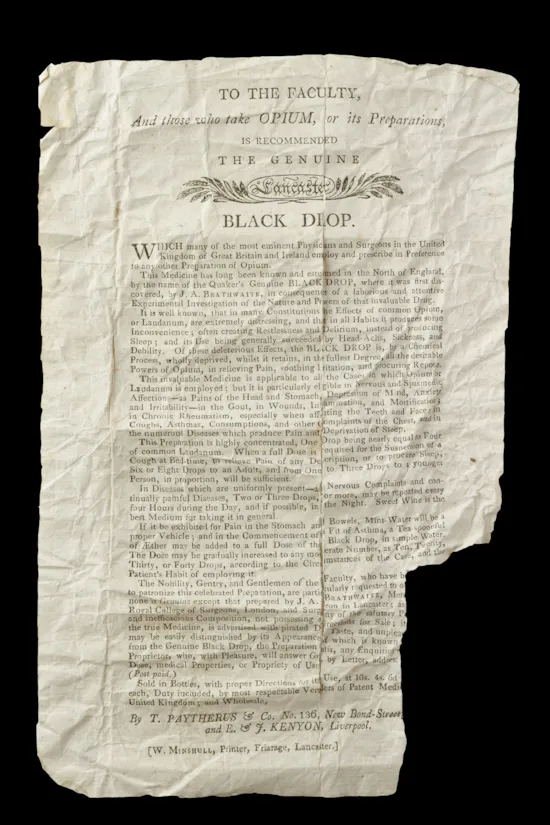 TO THE FACULTY,
And those who take OPIUM, or its Preparations,
IS RECOMMENDED
THE GENUINE
Lancaster
BLACK DROP.
WHICH many of the most eminent Physicians and Surgeons in the United
Kingdom of Great Britain and Ireland employ and prescribe in Preference
to any other Preparation of Opium.
This Medicine has long been known and esteemed in the North of England,
by the name of the Quaker's Genuine BLACK DROP, where it was first dis-
covered, by J. A. BRATHWAITE, in consequence of a laborious and attentive
Experimental Investigation of the Nature and Powers of that invaluable Drug.
It is well known, that in many Constitutions the Effects of common Opium,
or Laudanum, are extremely distressing, and that in all Habits it produces some
Inconvenience; often creating Restlessness and Delirium, instead of producing
Sleep; and its Use being generally succeeded by Head-Achs, Sickness, and
Debility. Of these deleterious Effects, the BLACK DROP is, by a Chemical
Process, wholly deprived, whilst it retains, in the fullest Degree, all the desirable
Powers of Opium, in relieving Pain, soothing Irritation, and procuring Repose.
This invaluable Medicine is applicable to all the Cases in which Opium or
Laudanum is employed; but it is particularly eligible in Nervous and Spasmodic
Affections—as Pains of the Head and Stomach, Depression of Mind, Anxiety
and Irritability—in the Gout, in Wounds, Inflammation, and Mortification;
in Chronic Rheumatism, especially when affecting the Teeth and Face; in
Coughs, Asthmas, Consumptions, and other Complaints of the Chest, and in
the numerous Diseases which produce Pain and Deprivation of Sleep.
This Preparation is highly concentrated, One Drop being nearly equal to Four
of common Laudanum. When a full Dose is required for the Suspension of a
Cough at Bed-time, to relieve Pain of any Description, or to procure Sleep,
Six or Eight Drops to an Adult, and from One to Three Drops to a younger
Person, in proportion, will be sufficient.
In Diseases which are uniformly present—as Nervous Complaints and con-
tinually painful Diseases, Two or Three Drops, or more, may be repeated every
four Hours during the Day, and if possible, in the Night. Sweet Wine is the
best Medium for taking it in general.
If it be exhibited for Pain in the Stomach and Bowels, Mint-Water will be a
proper Vehicle; and in the Commencement of a Fit of Asthma, a Tea spoonful
of Æther may be added to a full Dose of the Black Drop, in simple Water.
The Doze may be gradually increased to any moderate Number, as Ten, Twenty,
Thirty, or Forty Drops, according to the Circumstances of the Case, and the
Patient's Habit of employing it.
The Nobility, Gentry, and Gentlemen of the Faculty, who have b
to patronize this celebrated Preparation, are particularly requested to o
none is Genuine except that prepared by J. A. BRATHWAITE, Mem
Royal College of Surgeons, London, and Surgeon in Lancaster; as
and inefficacious Composition, not possessing any of the salutary P
the true Medicine, is advertised with pirated D ons for Sale; it
may be easily distinguished by its Appearance, Taste, and unplea
from the Genuine Black Drop, the Preparation of which is known
Proprietor, who, with Pleasure, will answer Gratis, any Enquiries
Dose, medical Properties, or Propriety of Use, by Letter, addres
(Post paid.)
Sold in Bottles, with proper Directions for its Use, at 10s. 4s. 6d
each, Duty included, by most respectable Venders of Patent Medi
United Kingdom; and Wholesale,
By T. PAYTHERUS & Co. No. 136, New Bond-Street,
and E. & J. KENYON, Liverpool.
[W. MINSHULL, Printer, Friarage, Lancaster.]